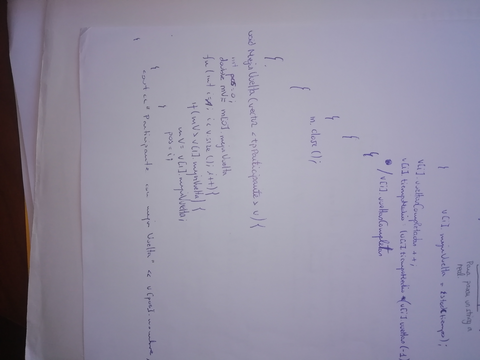 Para
pasar un string a
real
}
v[i].mejorVuelta = stod(tiempo);
v[i].vueltasCompletadas ++;
v[i].tiempoMedio
/ v[i].vueltasCompletas
}
}
}
in.close();
}
}
void MejorVuelta (vector <tpParticipante> v) {
int pos=0;
double mV= m[0].mejorVuelta
for (int i=1; i< v.size(); i++) {
if (mV > v[i].mejorVuelta) {
mV = v[i].mejorVuelta;
pos=i;
}
}
cout << " Participante con mejor Vuelta: << v[pos].nombre
}